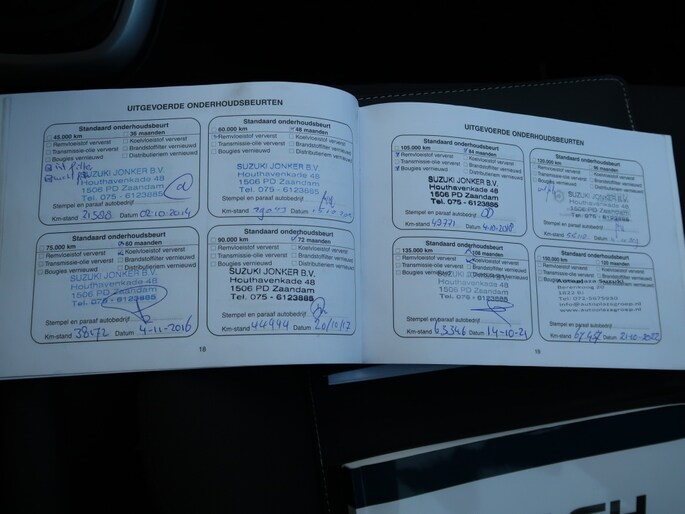 UITGEVOERDE ONDERHOUDSBEURTEN
Standaard onderhoudsbeurt
45.000 km 36 maanden
Remvloeistof ververst Koelvloeistof ververst
Transmissie-olie ververst Brandstoffilter vernieuwd
Bougies vernieuwd Distributieriem vernieuwd
SUZUKI JONKER B.V.
Houthavenkade 48
1506 PD Zaandam
Tel. 075 - 6123885
Stempel en paraaf autobedrijf
Km-stand 21588 Datum 02-10-2014
Standaard onderhoudsbeurt
60.000 km 48 maanden
Remvloeistof ververst Koelvloeistof ververst
Transmissie-olie ververst Brandstoffilter vernieuwd
Bougies vernieuwd Distributieriem vernieuwd
SUZUKI JONKER B.V.
Houthavenkade 48
1506 PD Zaandam
Tel. 075 - 6123885
Stempel en paraaf autobedrijf
Km-stand Datum
Standaard onderhoudsbeurt
75.000 km 60 maanden
Remvloeistof ververst Koelvloeistof ververst
Transmissie-olie ververst Brandstoffilter vernieuwd
Bougies vernieuwd Distributieriem vernieuwd
SUZUKI JONKER B.V.
Houthavenkade 48
1506 PD Zaandam
Tel. 075 - 6123885
Stempel en paraaf autobedrijf
Km-stand 38172 Datum 4-11-2016
Standaard onderhoudsbeurt
90.000 km 72 maanden
Remvloeistof ververst Koelvloeistof ververst
Transmissie-olie ververst Brandstoffilter vernieuwd
Bougies vernieuwd Distributieriem vernieuwd
SUZUKI JONKER B.V.
Houthavenkade 48
1506 PD Zaandam
Tel. 075 - 6123885
Stempel en paraaf autobedrijf
Km-stand 44944 Datum 20/10/17
18
UITGEVOERDE ONDERHOUDSBEURTEN
Standaard onderhoudsbeurt
105.000 km 84 maanden
Remvloeistof ververst Koelvloeistof ververst
Transmissie-olie ververst Brandstoffilter vernieuwd
Bougies vernieuwd Distributieriem vernieuwd
SUZUKI JONKER B.V.
Houthavenkade 48
1506 PD Zaandam
Tel. 075 - 6123885
Stempel en paraaf autobedrijf
Km-stand 49771 Datum 4-10-2018
Standaard onderhoudsbeurt
120.000 km 96 maanden
Remvloeistof ververst Koelvloeistof ververst
Transmissie-olie ververst Brandstoffilter vernieuwd
Bougies vernieuwd Distributieriem vernieuwd
Stempel en paraaf autobedrijf
Km-stand Datum
Standaard onderhoudsbeurt
135.000 km 108 maanden
Remvloeistof ververst Koelvloeistof ververst
Transmissie-olie ververst Brandstoffilter vernieuwd
Bougies vernieuwd Distributieriem vernieuwd
SUZUKI JONKER B.V.
Houthavenkade 48
1506 PD Zaandam
Tel. 075 - 6123885
Stempel en paraaf autobedrijf
Km-stand 65346 Datum 14-10-21
Standaard onderhoudsbeurt
150.000 km 120 maanden
Remvloeistof ververst Koelvloeistof ververst
Transmissie-olie ververst Brandstoffilter vernieuwd
Bougies vernieuwd Distributieriem vernieuwd
Stempel en paraaf autobedrijf
Km-stand Datum 21-10-2022
19